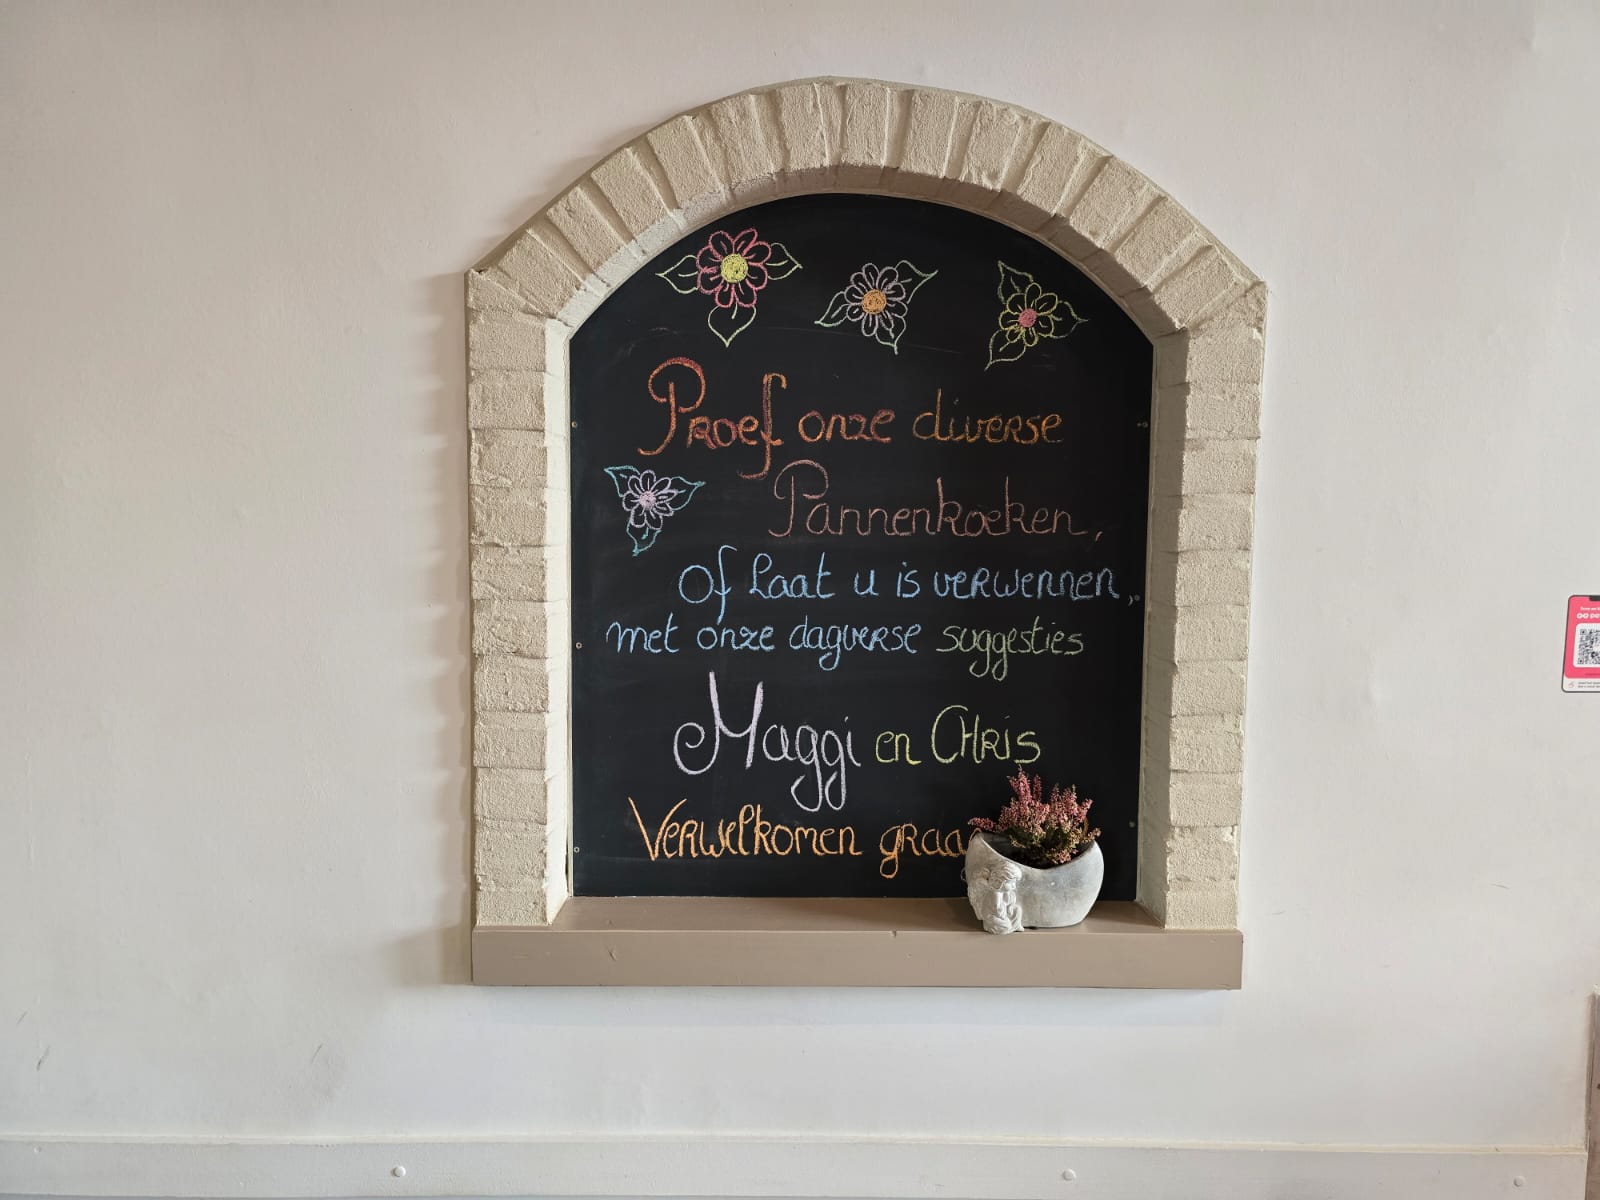 Proef onze diverse
Pannenkoeken,
Of laat u is verwennen,
met onze dagverse suggesties
Maggi en CHRis
Verwelkomen graa